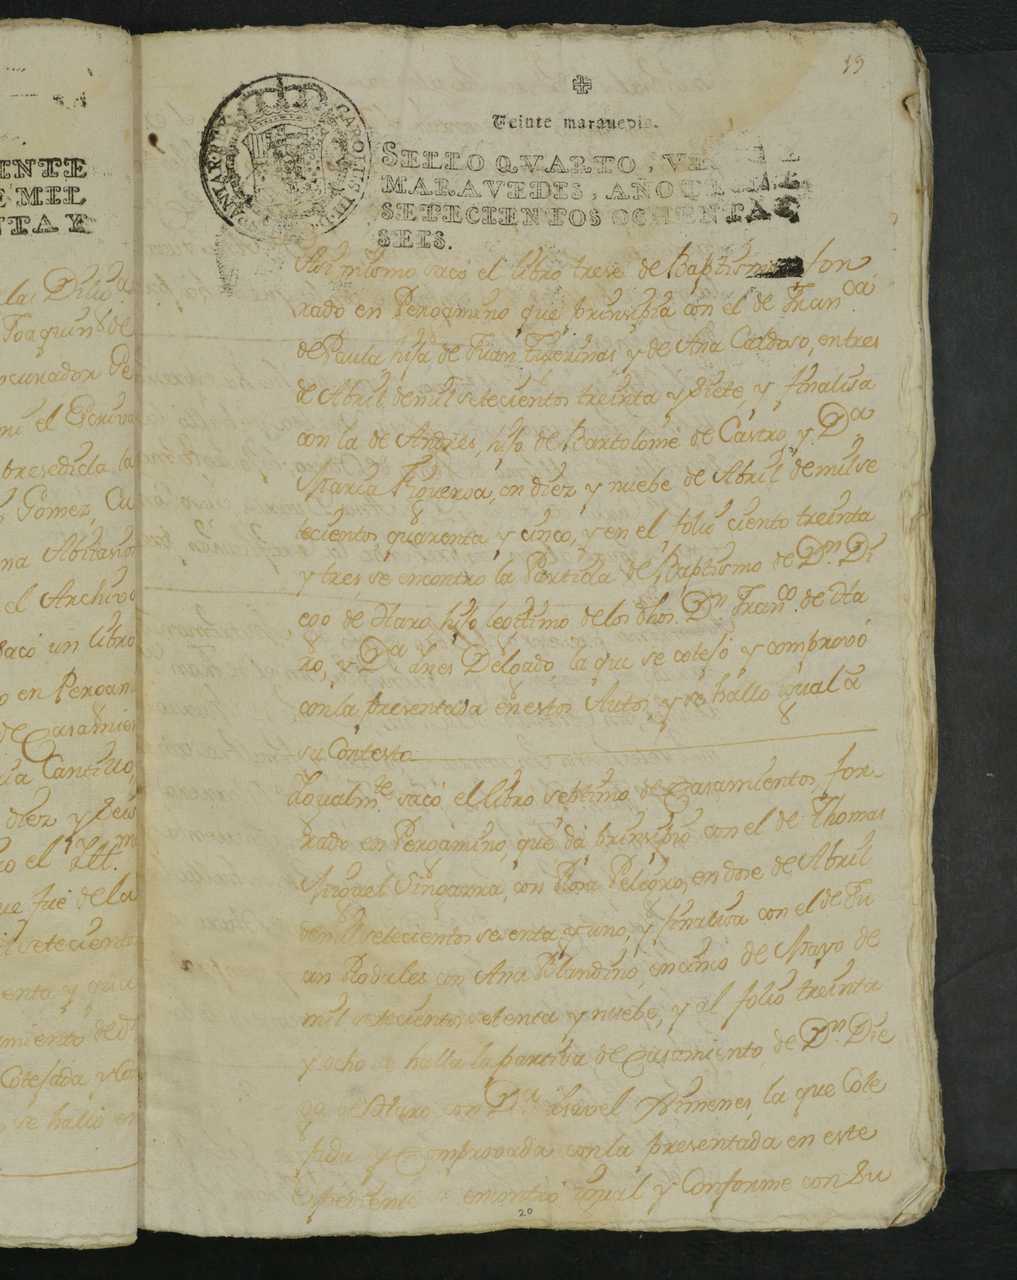 19
Veinte marauedis.
SELLO QVARTO, VEINTE
MARAVEDIS, AÑO DE MIL
SETECIENTOS OCHENTA Y
SEIS.
INTE
E MIL
NTA Y
CAROLUS III
Asi mismo sacó el libro trese de Baptismos for
rado en Pergamino que prinsipia con el de Fran.ca
de Paula hija de Juan Tixerinas y de Ana Cardoso, en tres
de Abril de mil setecientos treinta y siete, y finalisa
con la de Andres, hijo de Bartolomé de Castro, y D.a
Maria Figueroa, en diez y nuebe de Abril de mil se
tecientos quarenta y cinco, y en el folio ciento treinta
y tres se encontro la Partida de Baptismo de D.n Di
ego de Haro hijo legitimo de los dhos. D.n Fran.co de Ha
ro, y D.a Ines Delgado, la que se cotejó y comprovó
con la presentada en estos Autos, y se halló igual a
su Contesto
Igualm.te sacó el libro septimo de Casamientos, for-
rado en Pergamino, que da prinsipio con el de Thomas
Miguel Singarra, con Rosa Pelegro, en dose de Abril
de mil setecientos sesenta y uno, y finalisa con el de Ju
an Rodules con Ana Blandino, en cinco de Mayo de
mil setecientos setenta y nuebe, y al folio treinta
y ocho se halla la partida de Casamiento, de D.n Die
go de Haro con D.a Isavel Ximenes, la que Cote
jada y Comprovada con la presentada en este
Espediente se encontró igual y Conforme con su
20
Joaquin de
ocurador
el Escriva
bresedida, la
Gomez, Cu
na Abitasion
el Archivo
sacó un libro
o en Pergami
de Casamien
ia Cantillo,
diez y seis
o el Yllt.mo
ue fue de la
il setecientos
enta y
amiento de D.n
Cotejada y Co
se halló en